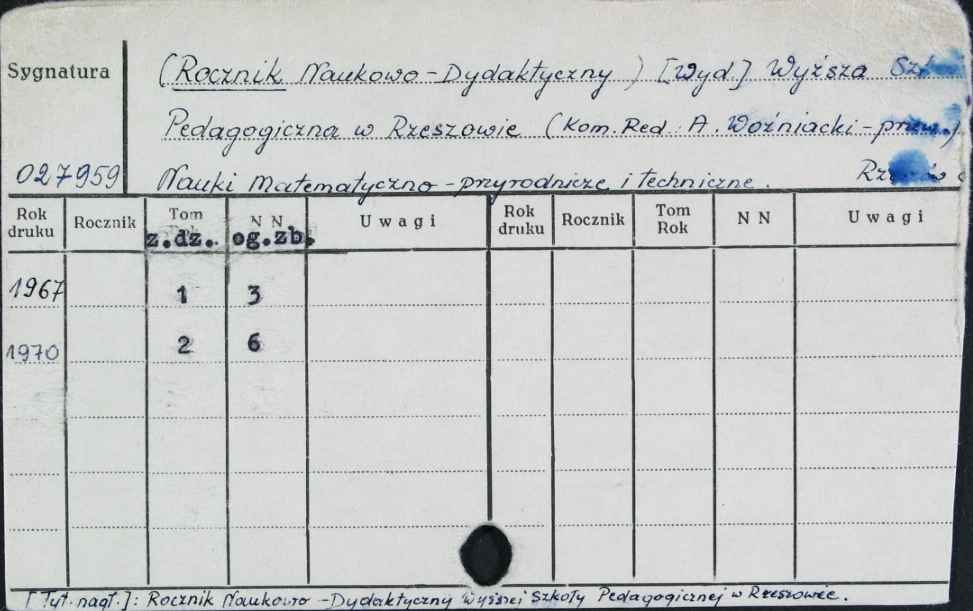 Sygnatura
(Rocznik Naukowo-Dydaktyczny) [Wyd.] Wyższa
Pedagogiczna w Rzeszowie (Kom. Red. A. Woźniacki-przew.)
027959 Nauki Matematyczno-przyrodnicze i techniczne.
Rok druku Rocznik Tom N N Uwagi Rok druku Rocznik Tom Rok N N Uwagi
z.dz. og.zb.
1967 1 3
1970 2 6
[Tyt. nagł.]: Rocznik Naukowo-Dydaktyczny Wyższej Szkoły Pedagogicznej w Rzeszowie.